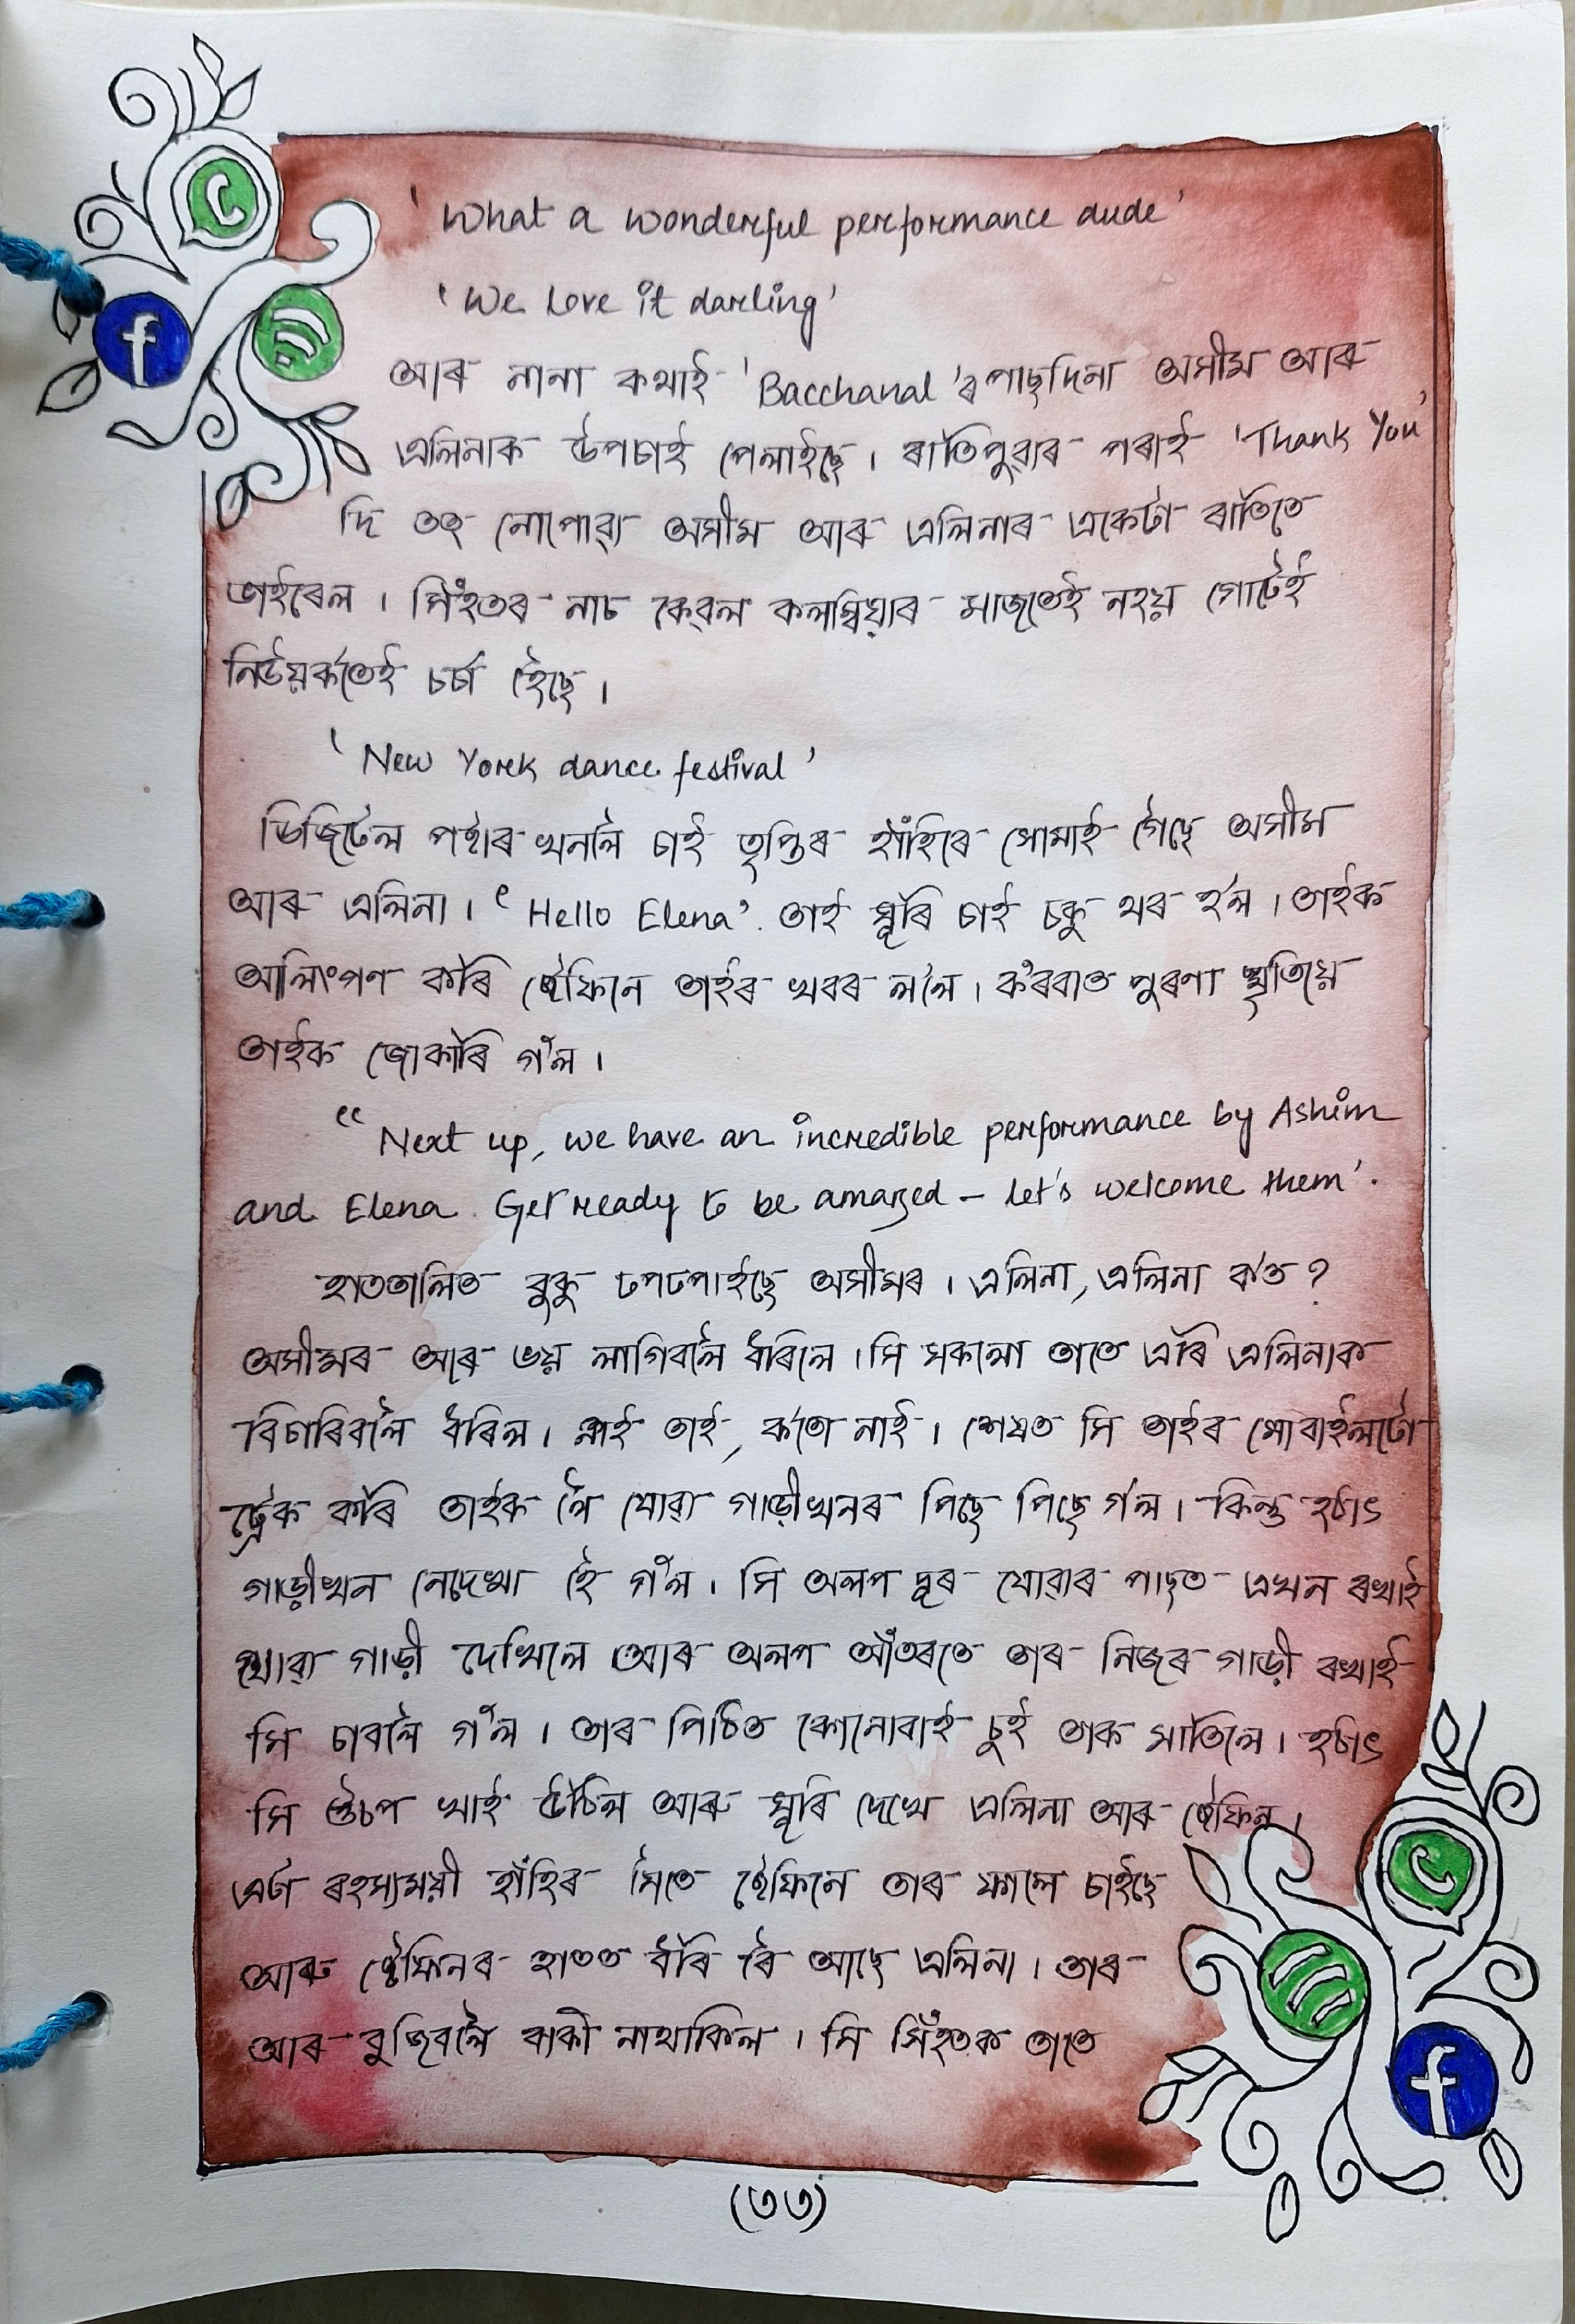 'What a wonderful performance dude'
'We love it darling'
আৰু নানা কথাই 'Bacchanal'ৰ পাছদিনা অসীম আৰু
এলিনাক উপচাই পেলাইছে। ৰাতিপুৱাৰ পৰাই 'Thank You'
দি তত্ নোপোৱা অসীম আৰু এলিনাৰ একেটা ৰাতিতে
ভাইৰেল। সিঁহতৰ নাচ কেৱল কলম্বিয়াৰ মাজতেই নহয় গোটেই
নিউয়ৰ্কতেই চৰ্চা হৈছে।
'New York dance festival'
ডিজিটেল পষ্টাৰ খনলৈ চাই তৃপ্তিৰ হাঁহিৰে সোমাই গৈছে অসীম
আৰু এলিনা। 'Hello Elena'. তাই ঘূৰি চাই চকু থৰ হ'ল। তাইক
আলিংগণ কৰি ষ্টেফিনে তাইৰ খবৰ ল'লৈ। ক'ৰবাত পুৰণা স্মৃতিয়ে
তাইক জোকাৰি গ'ল।
"Next up, we have an incredible performance by Ashim
and Elena. Get ready to be amazed – let's welcome them'.
হাততালিত বুকু ঢপঢপাইছে অসীমৰ। এলিনা, এলিনা ক'ত?
অসীমৰ আৰু ভয় লাগিবলৈ ধৰিলে। সি সকলো তাতে এৰি এলিনাক
বিচাৰিবলৈ ধৰিল। নাই তাই, ক'তো নাই। শেষত সি তাইৰ মোবাইলটো
ট্ৰেক কৰি তাইক লৈ যোৱা গাড়ীখনৰ পিছে পিছে গ'ল। কিন্তু হঠাৎ
গাড়ীখন নেদেখা হৈ গ'ল। সি অলপ দূৰ যোৱাৰ পাছত এখন ৰখাই
থোৱা গাড়ী দেখিলে আৰু অলপ আঁতৰতে তাৰ নিজৰ গাড়ী ৰখাই
সি চাবলৈ গ'ল। তাৰ পিঠিত কোনোবাই চুই তাক মাতিলে। হঠাৎ
সি উচপ খাই উঠিল আৰু ঘূৰি দেখে এলিনা আৰু ষ্টেফিন।
এটা ৰহস্যময়ী হাঁহিৰ সৈতে ষ্টেফিনে তাৰ ফালে চাইছে
আৰু ষ্টেফিনৰ হাতত ধৰি ৰৈ আছে এলিনা। তাৰ
আৰু বুজিবলৈ বাকী নাথাকিল। সি সিঁহতক তাতে
(৩৩)